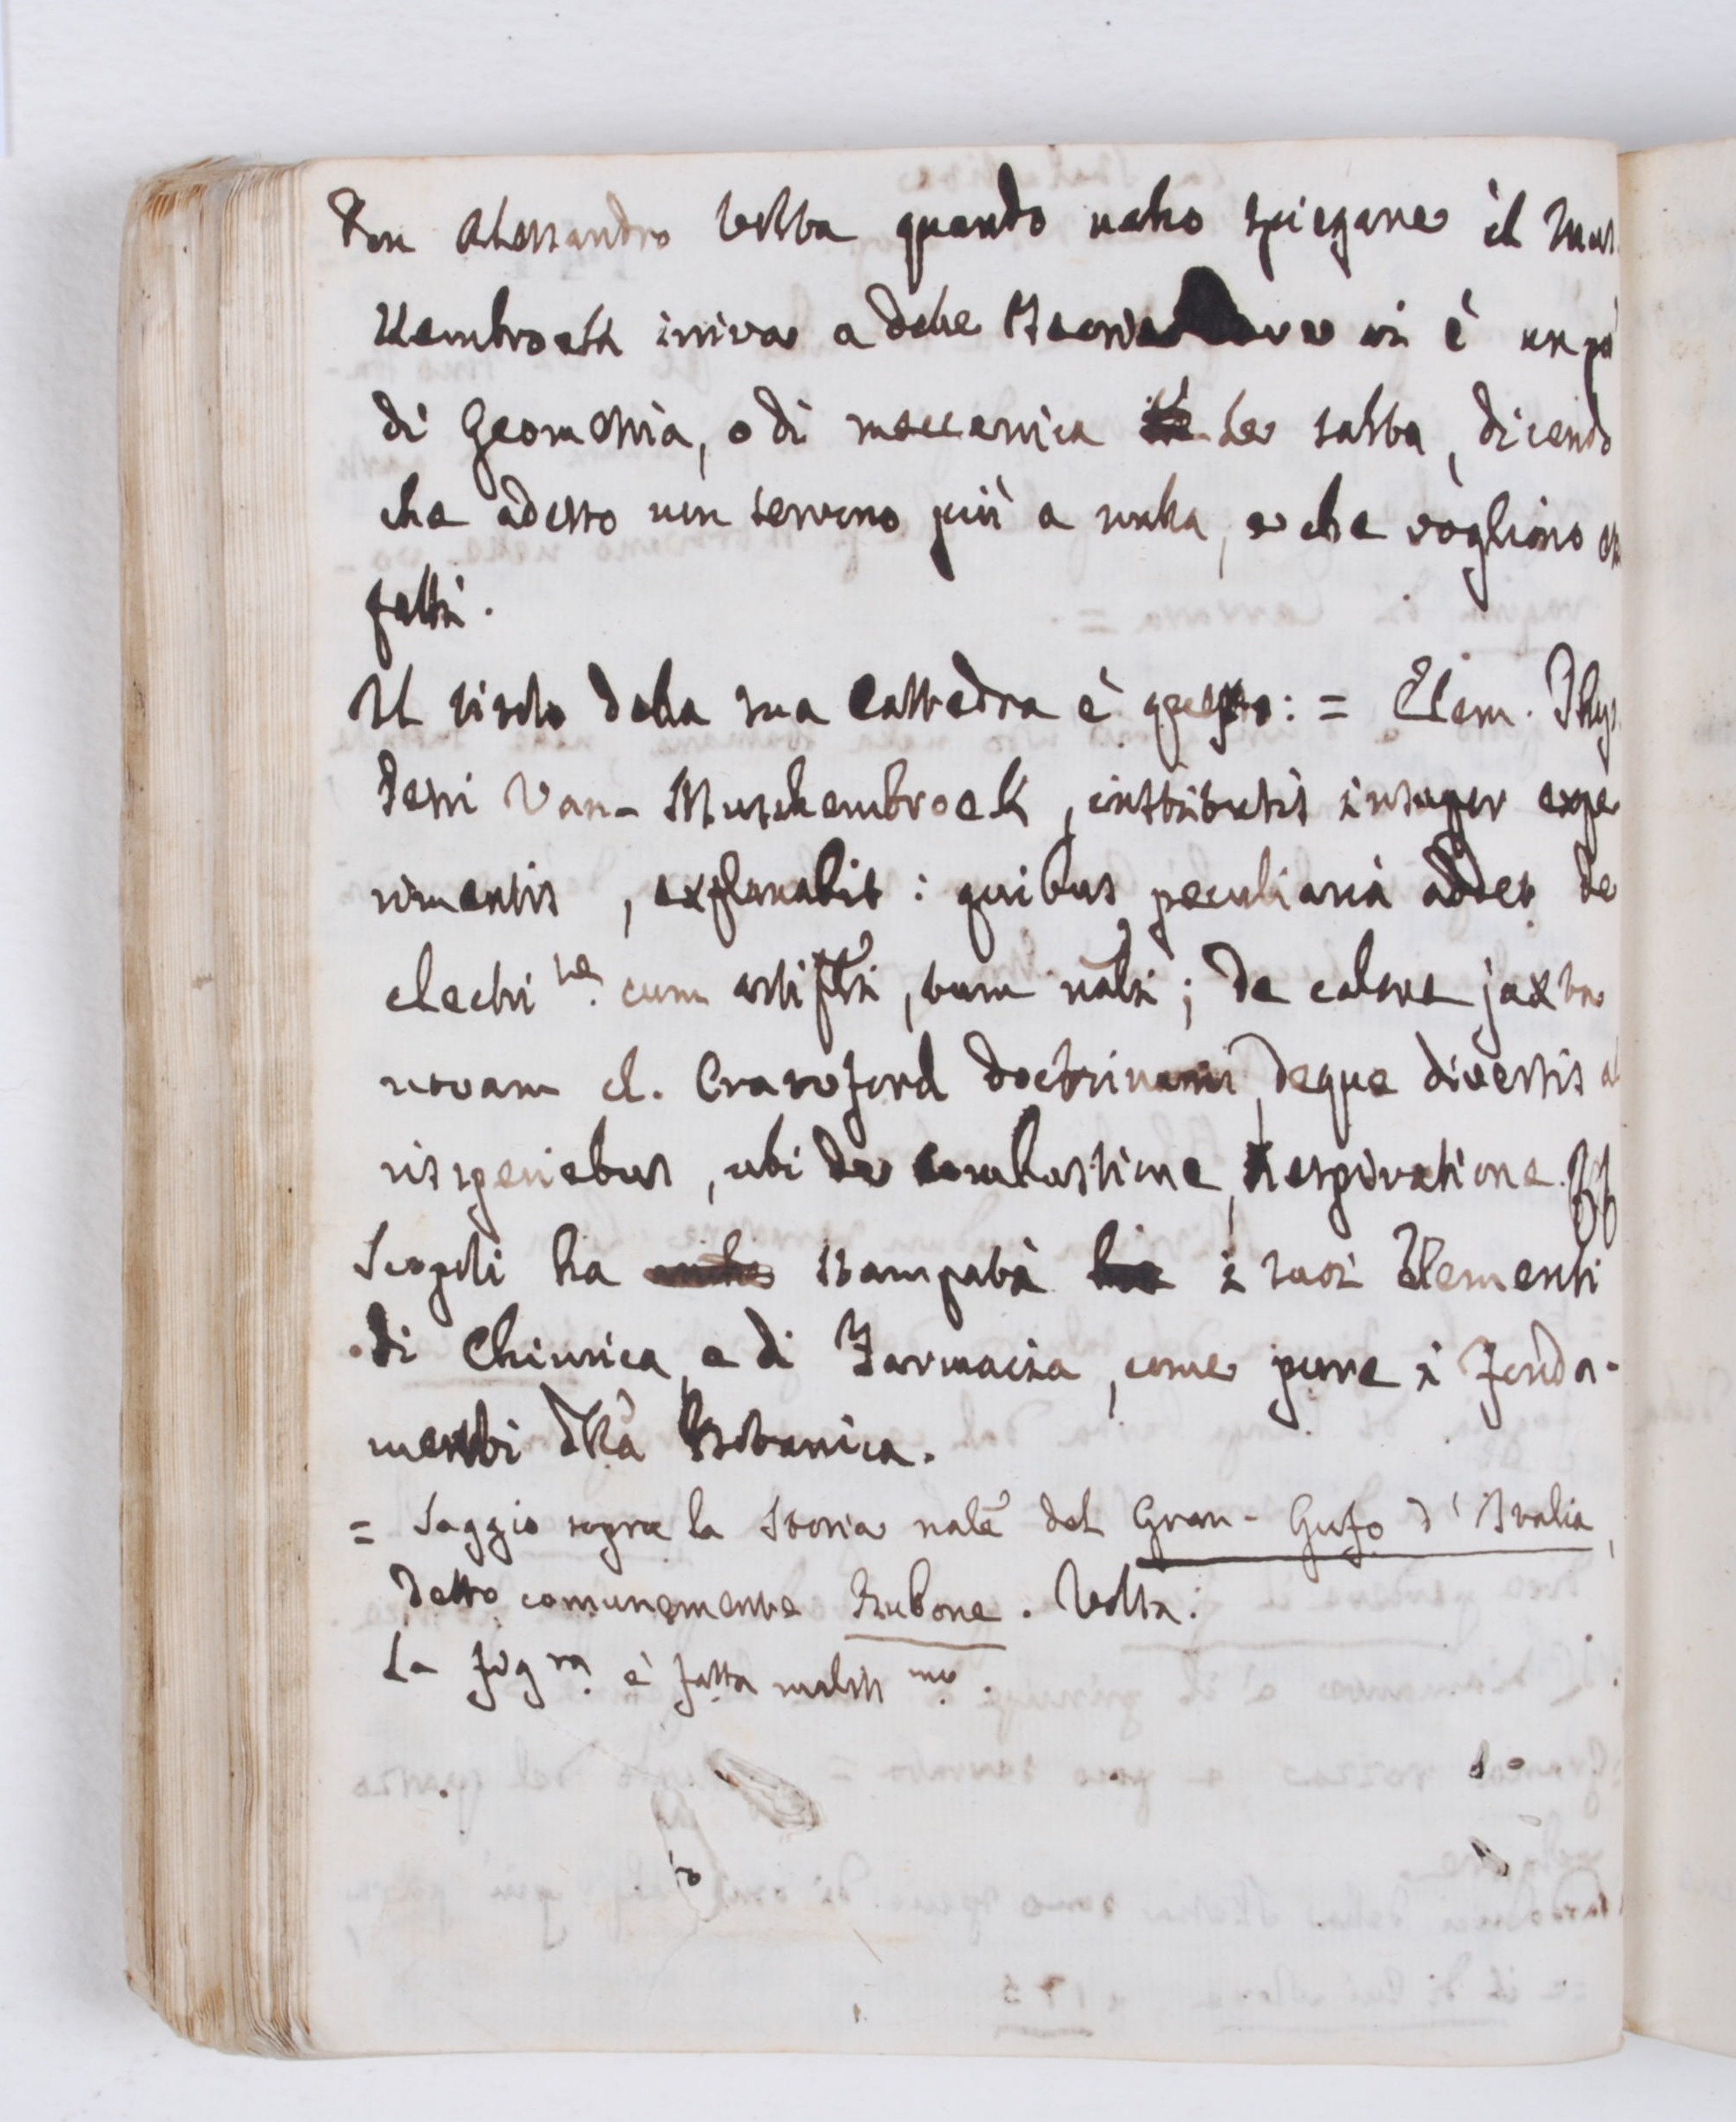 Don Alessandro Volta quando nello spiegare il Mus
Kembroek arriva a delle Teorie ove vi è un pò
di Geometria, o di meccanica le salta, dicendo
che adesso non servono più a nulla, e che vogliono
fatti.
Il titolo della sua Cattedra è questo: = Elem. Phys.
Petri Van-Muschembroek, institutis insuper expe
rimentis, explanabit: quibus peculiaria addet de
electri.te cum artifli, tum nãli; de calore juxta
novam cl. Crawford doctrinam, deque diversis a
ris speciebus, ubi de combustione, respiratione.
Scopoli ha stampati i suoi Elementi
di Chimica, e di Farmacia, come pure i Fonda-
menti dlla Botanica.
= Saggio sopra la Storia nãle del Gran-Gufo d'Italia,
detto comunemente Bubone. Volta.
La fig.ra è fatta maliss.mo.